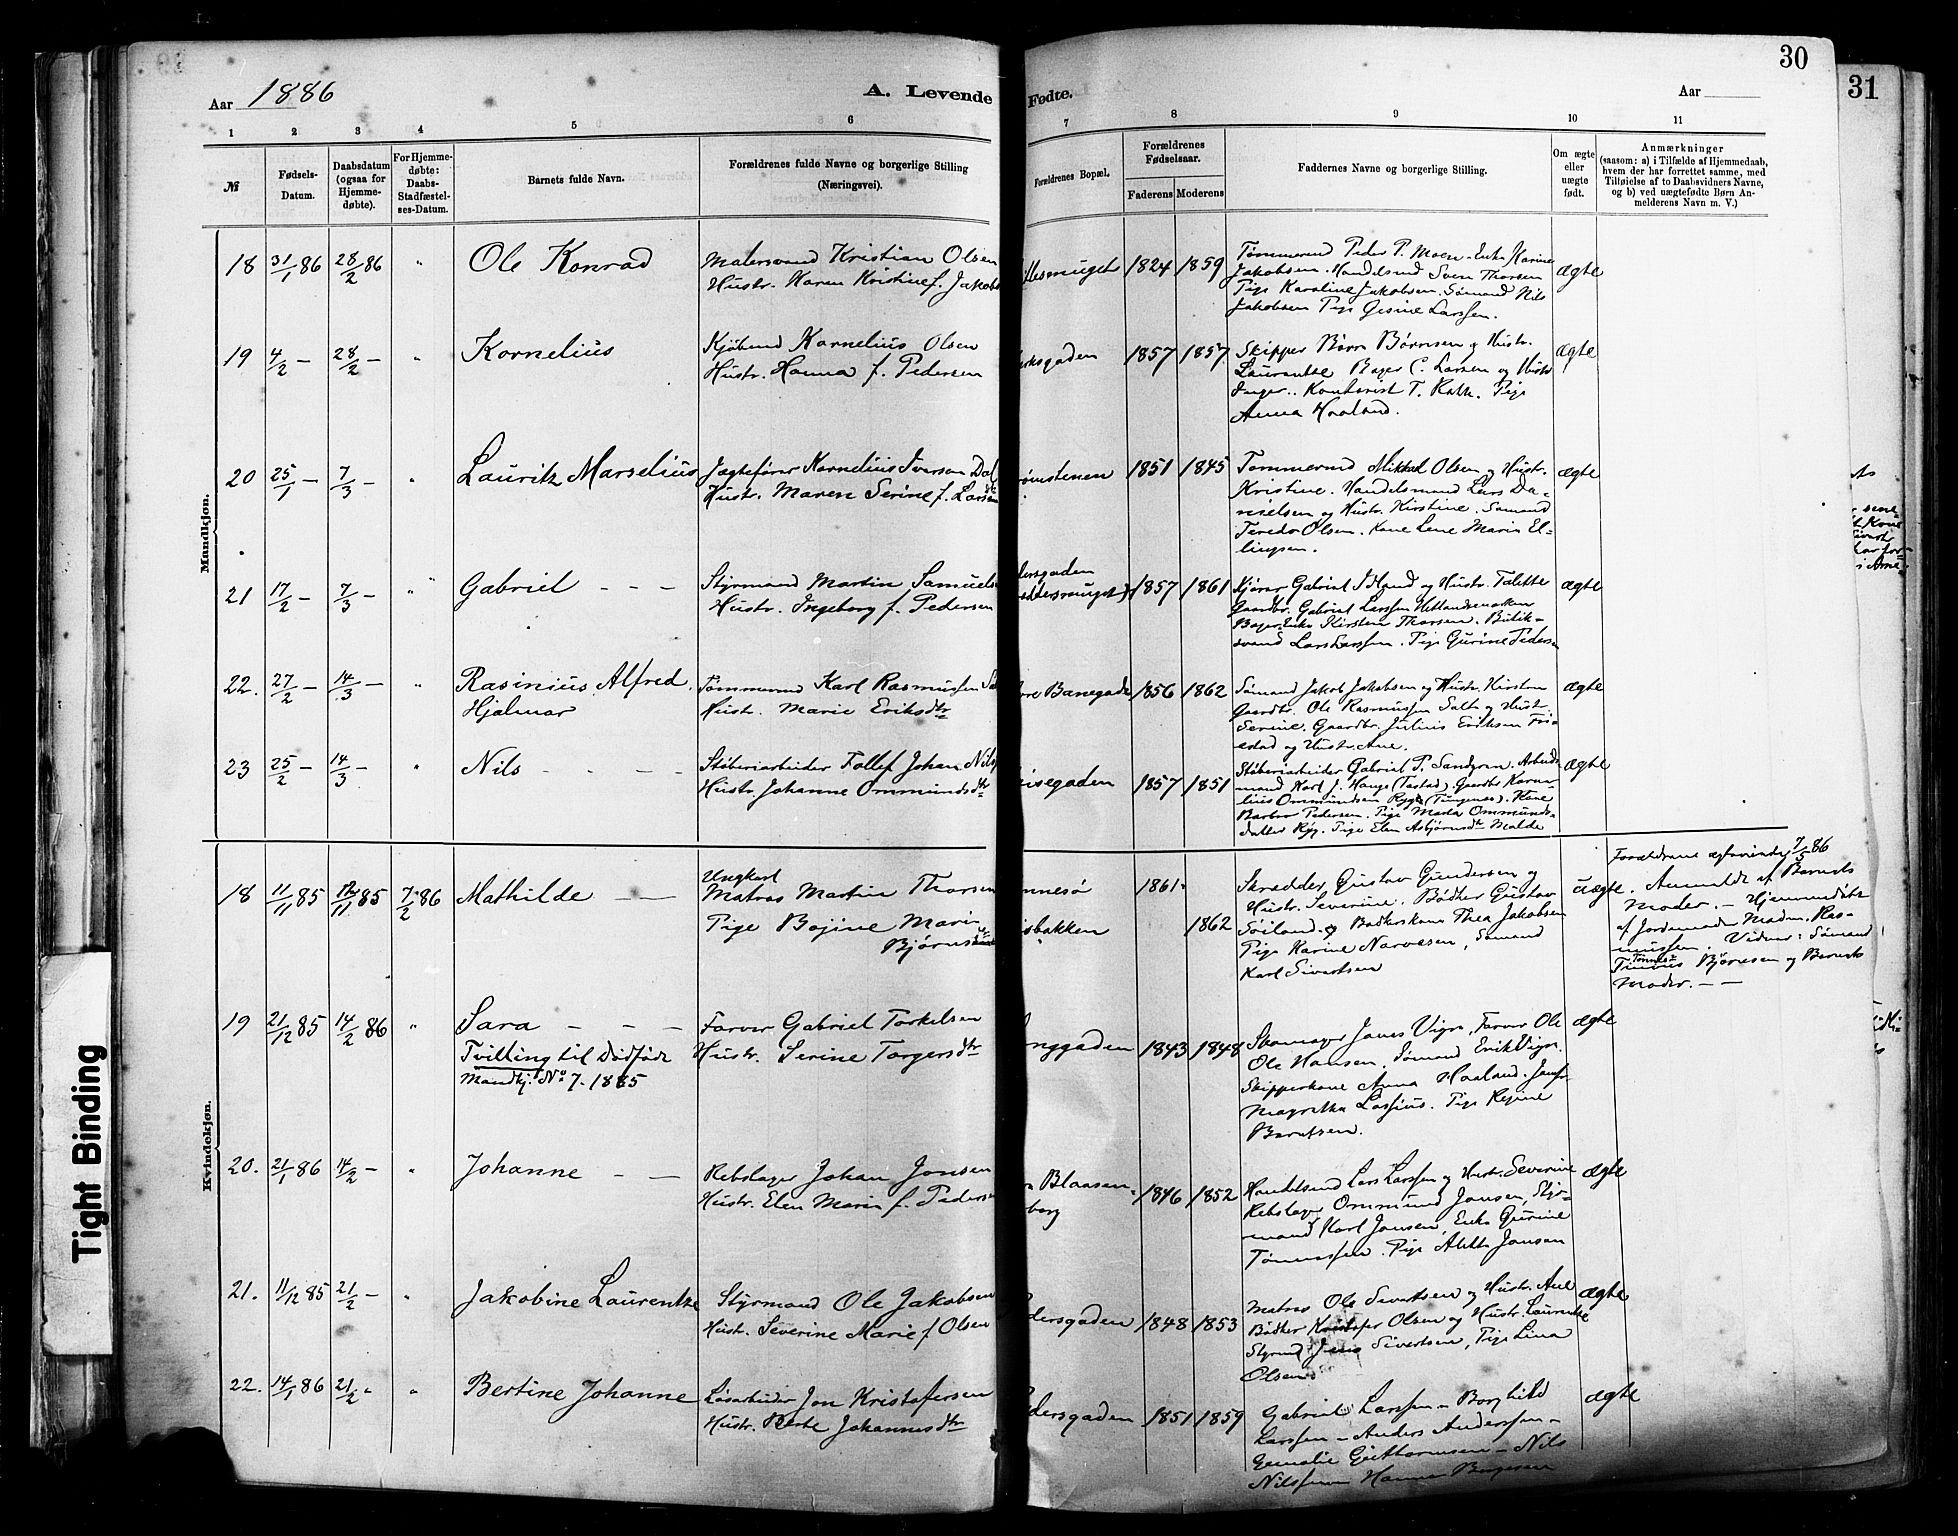 30
31
Aar 1886
A. Levende
Fødte.
Aar
1 2 3 4 5 6 7 8 9 10 11
№
Fødsels-
Datum.
Daabsdatum
(ogsaa for
Hjemme-
døbte).
For Hjemme-
døbte:
Daabs-
Stadfæstel-
ses-Datum.
Barnets fulde Navn.
Forældrenes fulde Navne og borgerlige Stilling
(Næringsvei).
Forældrenes Bopæl.
Forældrenes
Fødselsaar.
Faderens Moderens
Faddernes Navne og borgerlige Stilling.
Om ægte
eller
uægte
født.
Anmærkninger
(saasom: a) i Tilfælde af Hjemmedaab,
hvem der har forrettet samme, med
Tilføielse af to Daabsvidners Navne,
og b) ved uægtefødte Børn An-
melderens Navn m. V.)
Mandkjøn.
18 31/1 86 28/2 86 " Ole Konrad
Malersvend Kristian Olsen
Hustr. Karen Kristine f. Jakobs
1824 1859
Tømmermd Peder P. Moen. Enke Karine
Jakobsen. Handelsmd Sven Thorsen
Pige Karoline Jakobsen. Sømand Nils
Jakobsen Pige Gesine Larssen.
ægte
19 4/2 – 28/2 – " Kornelius
Kjøbmd Kornelius Olsen
Hustr. Hanna f. Pedersen
1857 1857
Skipper Børn Børnsen og Hustr.
Laurentze Bager C. Larsen og Hustr
Inger.. Kontorist T. Rath. Pige
Anna Haaland.
ægte
20 25/1 – 7/3 – " Lauritz Marselius
Jægtefører Kornelius Iversen Dal
Hustr. Maren Serine f. Larsen
1851 1845
Tømmermd Mikkal Olsen og Hustr.
Kristine. Handelsmand Lars Da-
nielsen og Hustr. Kirstine. Sømand
Olsen. Kone Lene Marie El-
lingsen.
ægte
21 17/2 – 7/3 – " Gabriel – – –
Styrmand Martin Samuels
Hustr. Ingeborg f. Pedersen
dersgaden
1857 1861
Kjører Gabriel og Hustr. Talette
Gaardbr. Gabriel Larssen Hetlandsmarken
Bager Enke Kirsten Thorsen. Butik-
svend Lars Larssen. Pige Gurine Peders-
ægte
22. 27/2 – 14/3 – " Rasinius Alfred
Hjalmar
Tømmermd Karl Rasmussen
Hustr. Marie Eriksdtr
re Banegade 1856 1862
Sømand Jakob Jakobsen og Hustr. Kirsten
Gaardbr. Ole Rasmussen Salte og Hustr
Serine. Gaardbr. Julius Eriksen Fri-
estad og Hustr. Ane.
ægte
23 25/2 – 14/3 – " Nils – – –
Støberiarbeider Tollef Johan Nils
Hustr. Johanne Ommundsdtr
isegaden 1857 1851
Støberiarbeider Gabriel P. Sandgren. Arbeids-
mand Karl J. Hauge (Tastad). Gaardbr Korne-
lius Ommundsen Ryg (Tungenes). Kone
Barbro Pedersen. Pige Marta Ommunds-
datter Ryg. Pige Elen Asbjørnsdtr Malde
ægte
Kvindekjøn.
18 11/11 85 12/11 85 7/2 86 Mathilde – –
Ungkarl
Matros Martin Thorsen
Pige Bojine Marie
nnesø
isbakken
1861
1862
Skrædder Gustav Gundersen og
Hustr. Severine. Bødker Gustav
Søiland og Bødkerkone Thea Jakobsen
Pige Karine Narvesen, Sømand
Karl Sivertsen
uægte.
Forældrene ægteviedes 7/5 86
Anmeldt af Barnets
Moder. – Hjemmedøbt
af Jordemoder Madm. Ras-
mussen. Vidner: Sømand
Tønnes Bjørnsen og Barnets
Moder. – –
19 21/12 85 14/2 86 " Sara – – –
Tvilling til Dødfødt
Mandkj. No 7. 1885
Farver Gabriel Torkelsen
Hustr. Serine Torgersdtr
nggaden 1843 1848
Skomager Jonas Vigre, Farver Ole
Ole Hansen. Sømand Erik Vigre.
Skipperkone Anna Haaland. Jomfr
Magrethe Lassius. Pige Regine
Berntsen.
ægte
20. 21/1 86 14/2 – " Johanne – –
Rebslager Johan Jonsen
Hustr. Elen Marie f. Peders
Blaasen-
borg
1846 1852
Handelsmd Lars Larssen og Hustr. Severine
Rebslager Ommund Jansen, Styr-
mand Karl Jansen, Enke Gurine
Tønnessen. Pige Alette Jansen
ægte
21. 11/12 85 21/2 – " Jakobine Laurentze
Styrmand Ole Jakobsen
Hustr. Severine Marie f. Olsen
dersgaden 1848 1853
Matros Ole Sivertsen og Hustr. Ane
Bødker Kristoffer Olsen og Hustr. Laurentze
Styrmd Jens Sivertsen, Pige Lina
Olsen
ægte
22. 14/1 86 21/2 " " Bertine Johanne
Løsarbeider Jon Kristofersen
Hustr. Berte Johannesdtr
dersgaden 1851 1859
Gabriel Larssen – Borghild
Larssen – Anders Anderssen –
Guttormsen – Nils
Nilssen Hanna Børgesen
ægte
Tight Binding